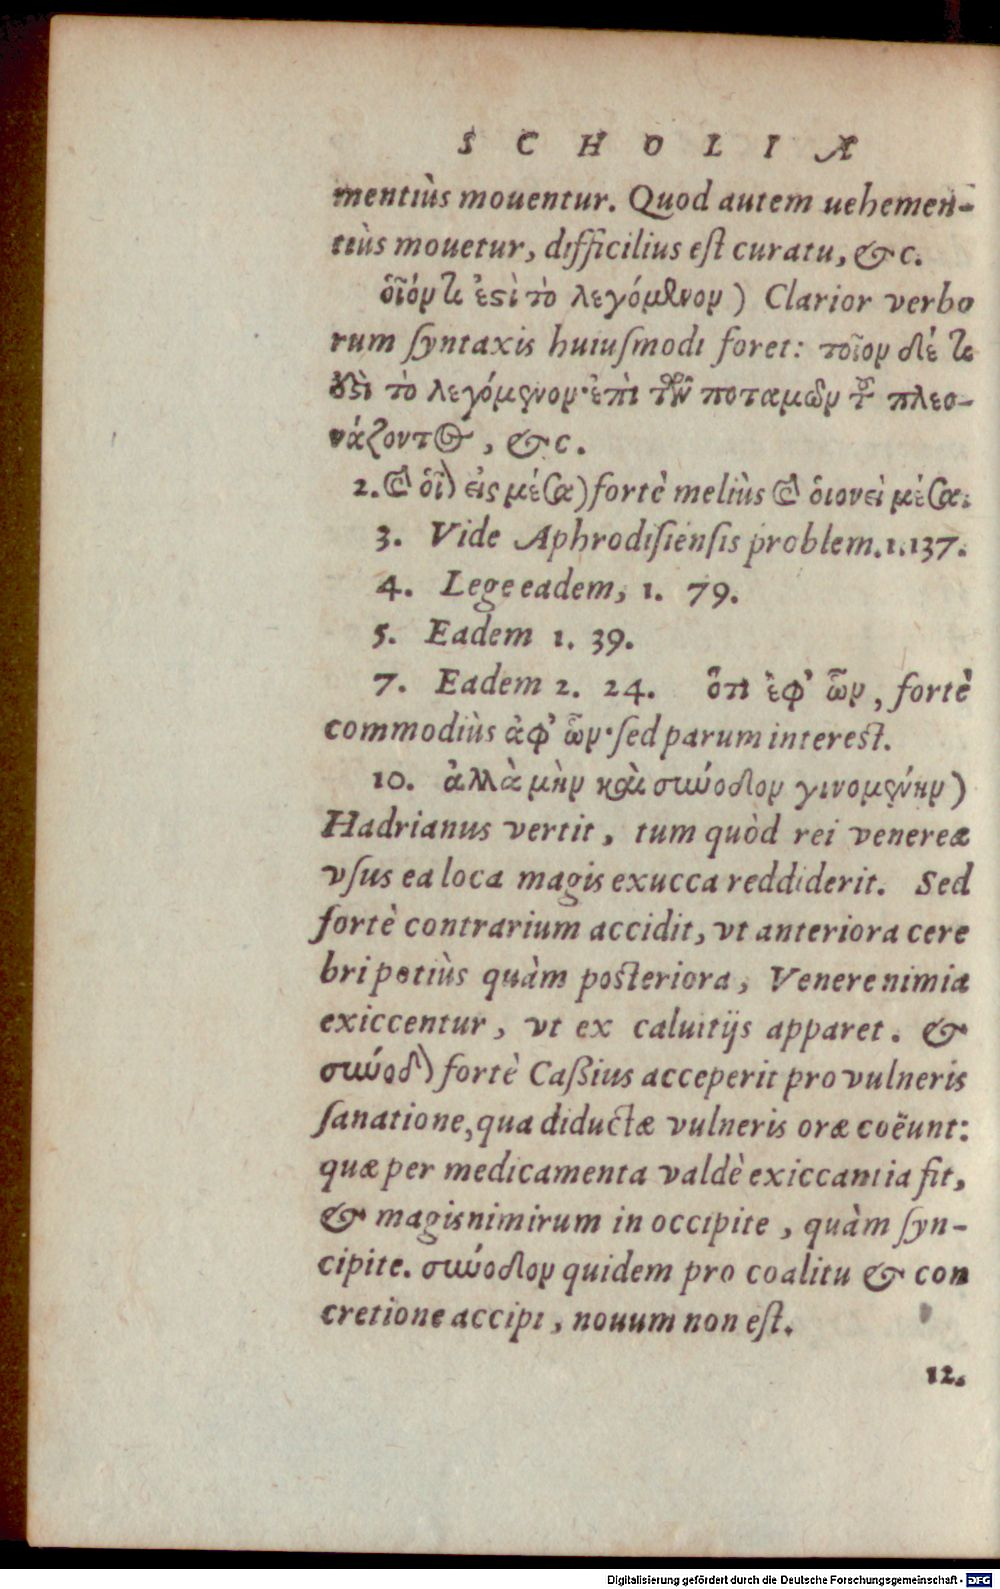 SCHOLIA
mentiùs mouentur. Quod autem uehemen-
tiùs mouetur, difficilius eſt curatu, &c.
οἷόν τε ἐστὶ τὸ λεγόμενον) Clarior verbo
rum ſyntaxis huiuſmodi foret: τοῖον δέ τε
ἐστὶ τὸ λεγόμενον· ἐπὶ τῶν ποταμῶν τοῦ πλεο-
νάζοντος, &c.
2. εἰς μέσα) fortè meliùs οἱονεὶ μέσα.
3. Vide Aphrodiſienſis problem. 1. 137.
4. Lege eadem, 1. 79.
5. Eadem 1. 39.
7. Eadem 2. 24. ὅτι ἐφ' ὧν, fortè
commodiùs ἀφ' ὧν· ſed parum intereſt.
10. ἀλλὰ μὴν καὶ σύνοδον γινομένην)
Hadrianus vertit, tum quòd rei venereæ
vſus ea loca magis exucca reddiderit. Sed
fortè contrarium accidit, vt anteriora cere
bri potiùs quàm poſteriora, Venere nimia
exiccentur, vt ex caluitijs apparet. &
σύνοδον fortè Caßius acceperit pro vulneris
ſanatione, qua diductæ vulneris oræ coëunt:
quæ per medicamenta valdè exiccantia fit,
& magis nimirum in occipite, quàm ſyn-
cipite. σύνοδον quidem pro coalitu & con
cretione accipi, nouum non eſt.
12.
Digitalisierung gefördert durch die Deutsche Forschungsgemeinschaft - DFG